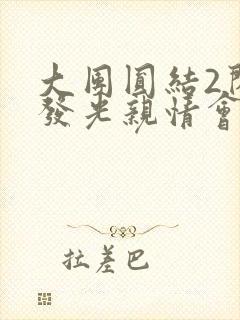 大團圓結2
發光親情會
拉差巴